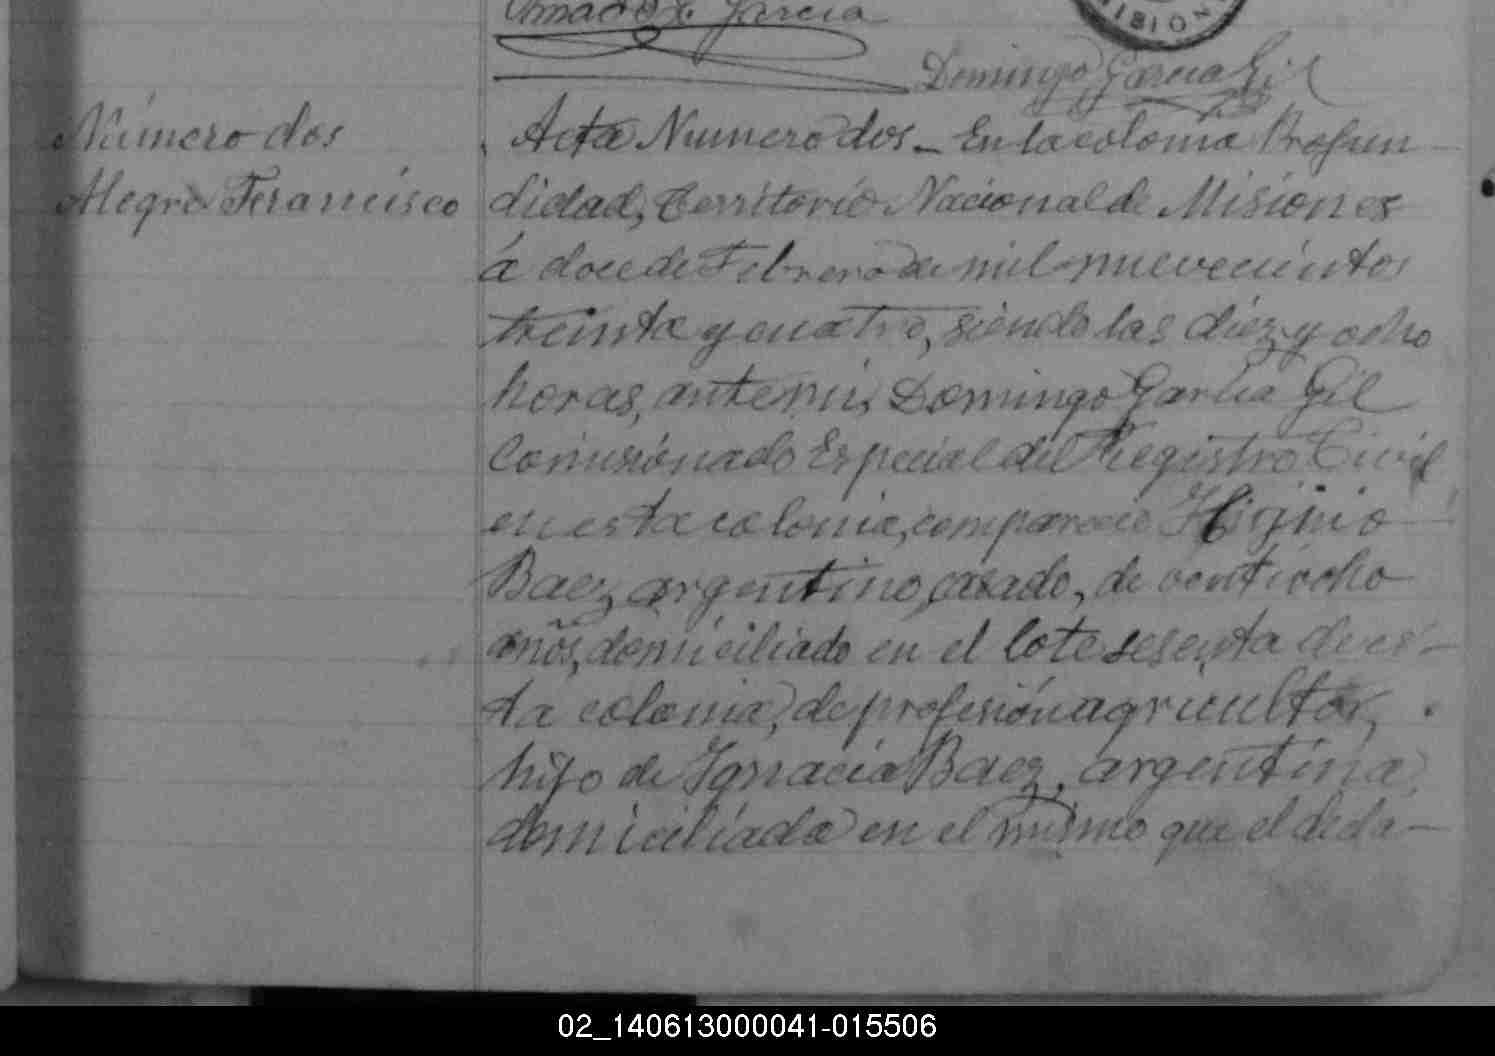 Amado F. Garcia
Domingo Garcia Gil
Número dos
Alegre Francisco
Acta Numero dos - En la colonia Profun
didad, Territorio Nacional de Misiones
á doce de Febrero de mil nuevecientos
treinta y cuatro, siendo las diez y ocho
horas, ante mi, Domingo Garcia Gil
Comisionado Especial del Registro Civil
en esta colonia, compareció Higinio
Baez, argentino, casado, de ventiocho
años, domiciliado en el lote sesenta de es-
ta colonia, de profesión agricultor,
hijo de Ignacia Baez, argentina,
domiciliada en el mismo que el decla-
02_140613000041-015506